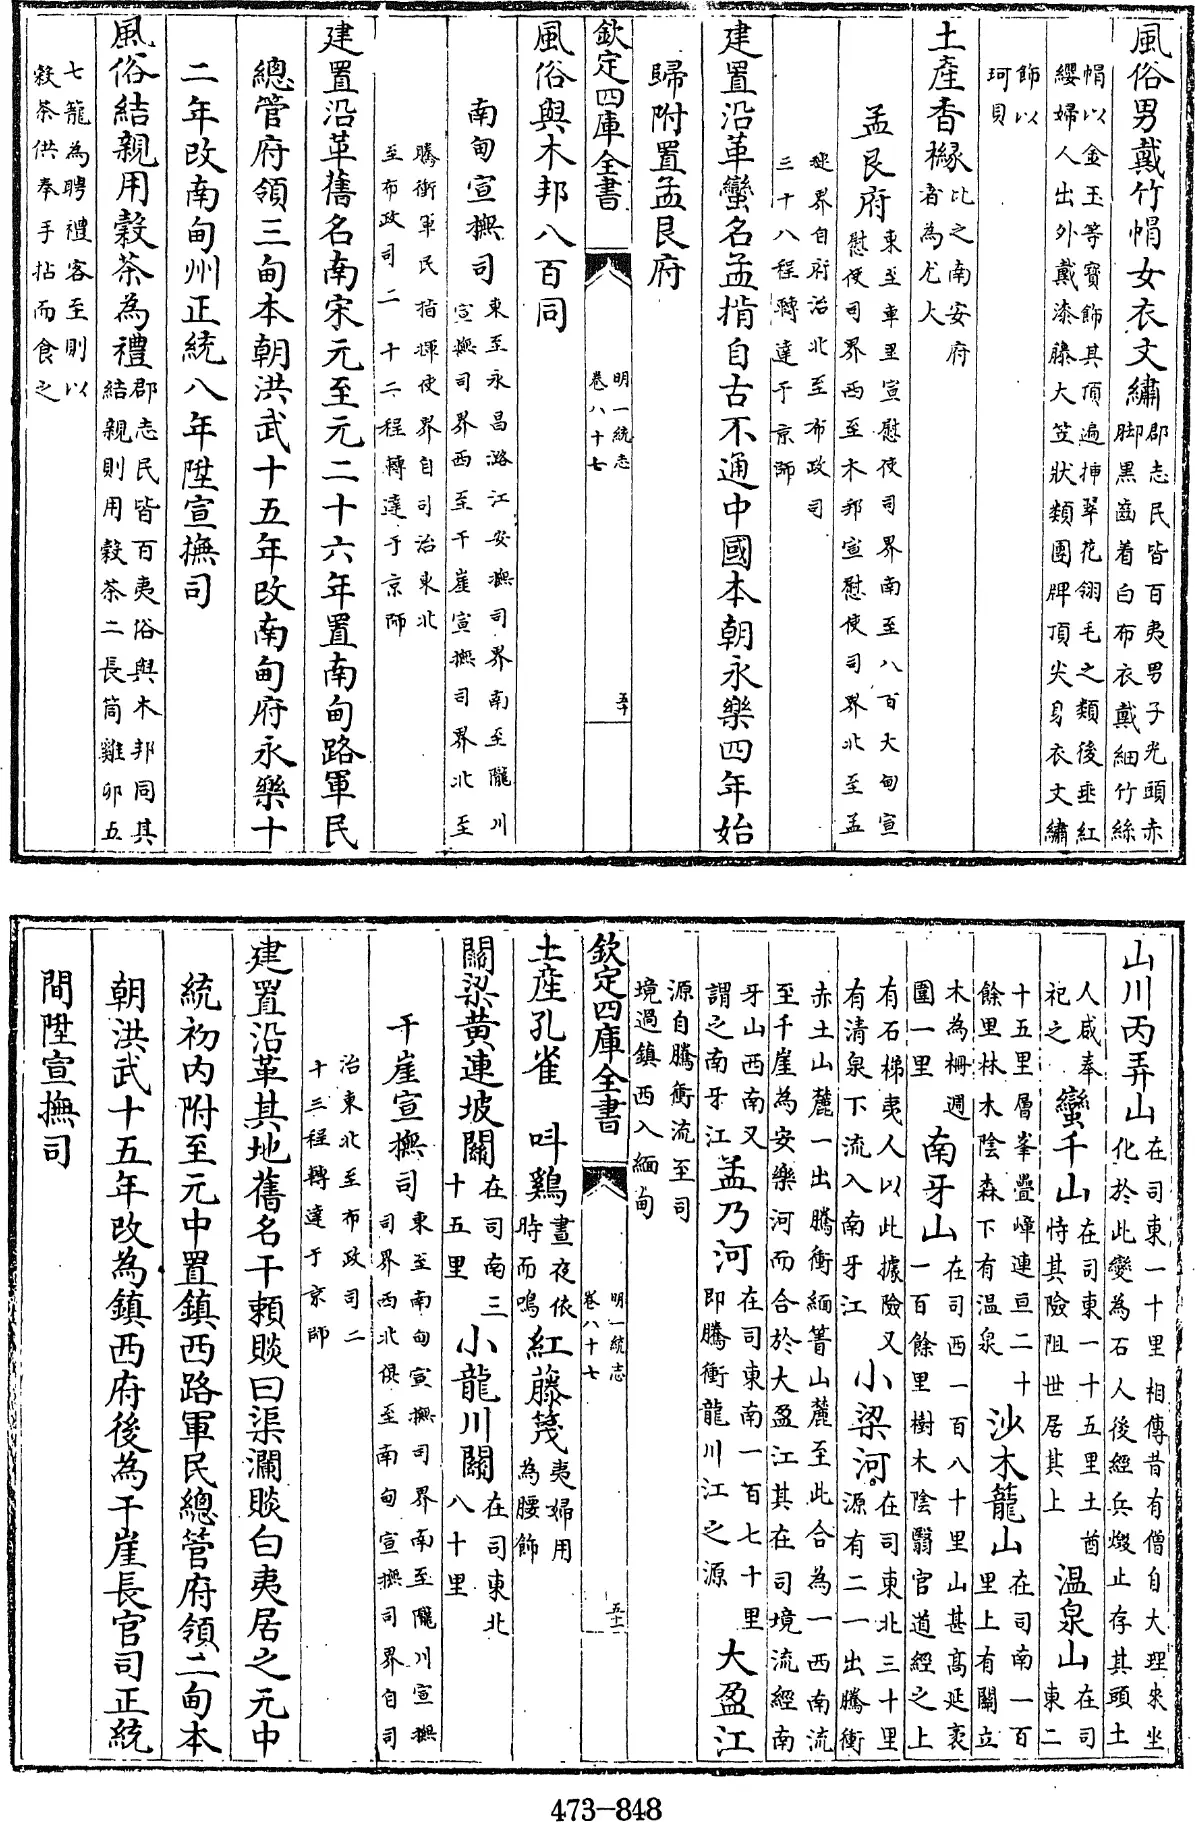 風俗男戴竹帽女衣文繡郡志民皆百夷男子光頭赤
脚黑齒着白布衣戴細竹絲
帽以金玉等寶飾其頂遍揷翠花翎毛之類後垂紅
纓婦人出外戴漆藤大笠狀類團牌頂尖身衣文繡
飾以
珂貝
土產香櫞比之南安府
者為尤大
孟艮府東至車里宣慰使司界南至八百大甸宣
慰使司界西至木邦宣慰使司界北至孟
璉界自府治北至布政司
三十八程轉達于京師
建置沿革蠻名孟掯自古不通中國本朝永樂四年始
歸附置孟艮府
欽定四庫全書
明一統志
卷八十七
五十
風俗與木邦八百同
南甸宣撫司東至永昌潞江安撫司界南至隴川
宣撫司界西至干崖宣撫司界北至
騰衝軍民指揮使界自司治東北
至布政司二十二程轉達于京師
建置沿革舊名南宋元至元二十六年置南甸路軍民
總管府領三甸本朝洪武十五年改南甸府永樂十
二年改南甸州正統八年陞宣撫司
風俗結親用穀茶為禮郡志民皆百夷俗與木邦同其
結親則用穀茶二長筒雞卵五
七籠為聘禮客至則以
穀茶供奉手拈而食之
山川丙弄山在司東一十里相傳昔有僧自大理來坐
化於此變為石人後經兵燬止存其頭土
人咸奉
祀之
蠻干山在司東一十五里土酋
恃其險阻世居其上
溫泉山在司
東二
十五里層峯疊嶂連亘二十
餘里林木陰森下有温泉
沙木籠山在司南一百
里上有關立
木為柵週
圍一里
南牙山在司西一百八十里山甚髙延袤
一百餘里樹木陰翳官道經之上
有石梯夷人以此據險又
有清泉下流入南牙江
小梁河在司東北三十里
源有二一出騰衝
赤土山麓一出騰衝緬箐山麓至此合為一西南流
至干崖為安樂河而合於大盈江其在司境流經南
牙山西南又
謂之南牙江
孟乃河在司東南一百七十里
即騰衝龍川江之源
大盈江
源自騰衝流至司
境過鎮西入緬甸
欽定四庫全書
明一統志
卷八十七
五十一
土產孔雀
叫鷄晝夜依
時而鳴
紅藤篾夷婦用
為腰飾
關梁黄連坡關在司南三
十五里
小龍川關在司東北
八十里
干崖宣撫司東至南甸宣撫司界南至隴川宣撫
司界西北俱至南甸宣撫司界自司
治東北至布政司二
十三程轉達于京師
建置沿革其地舊名干賴賧曰渠瀾賧白夷居之元中
統初内附至元中置鎮西路軍民總管府領二甸本
朝洪武十五年改為鎮西府後為干崖長官司正統
間陞宣撫司
473-848